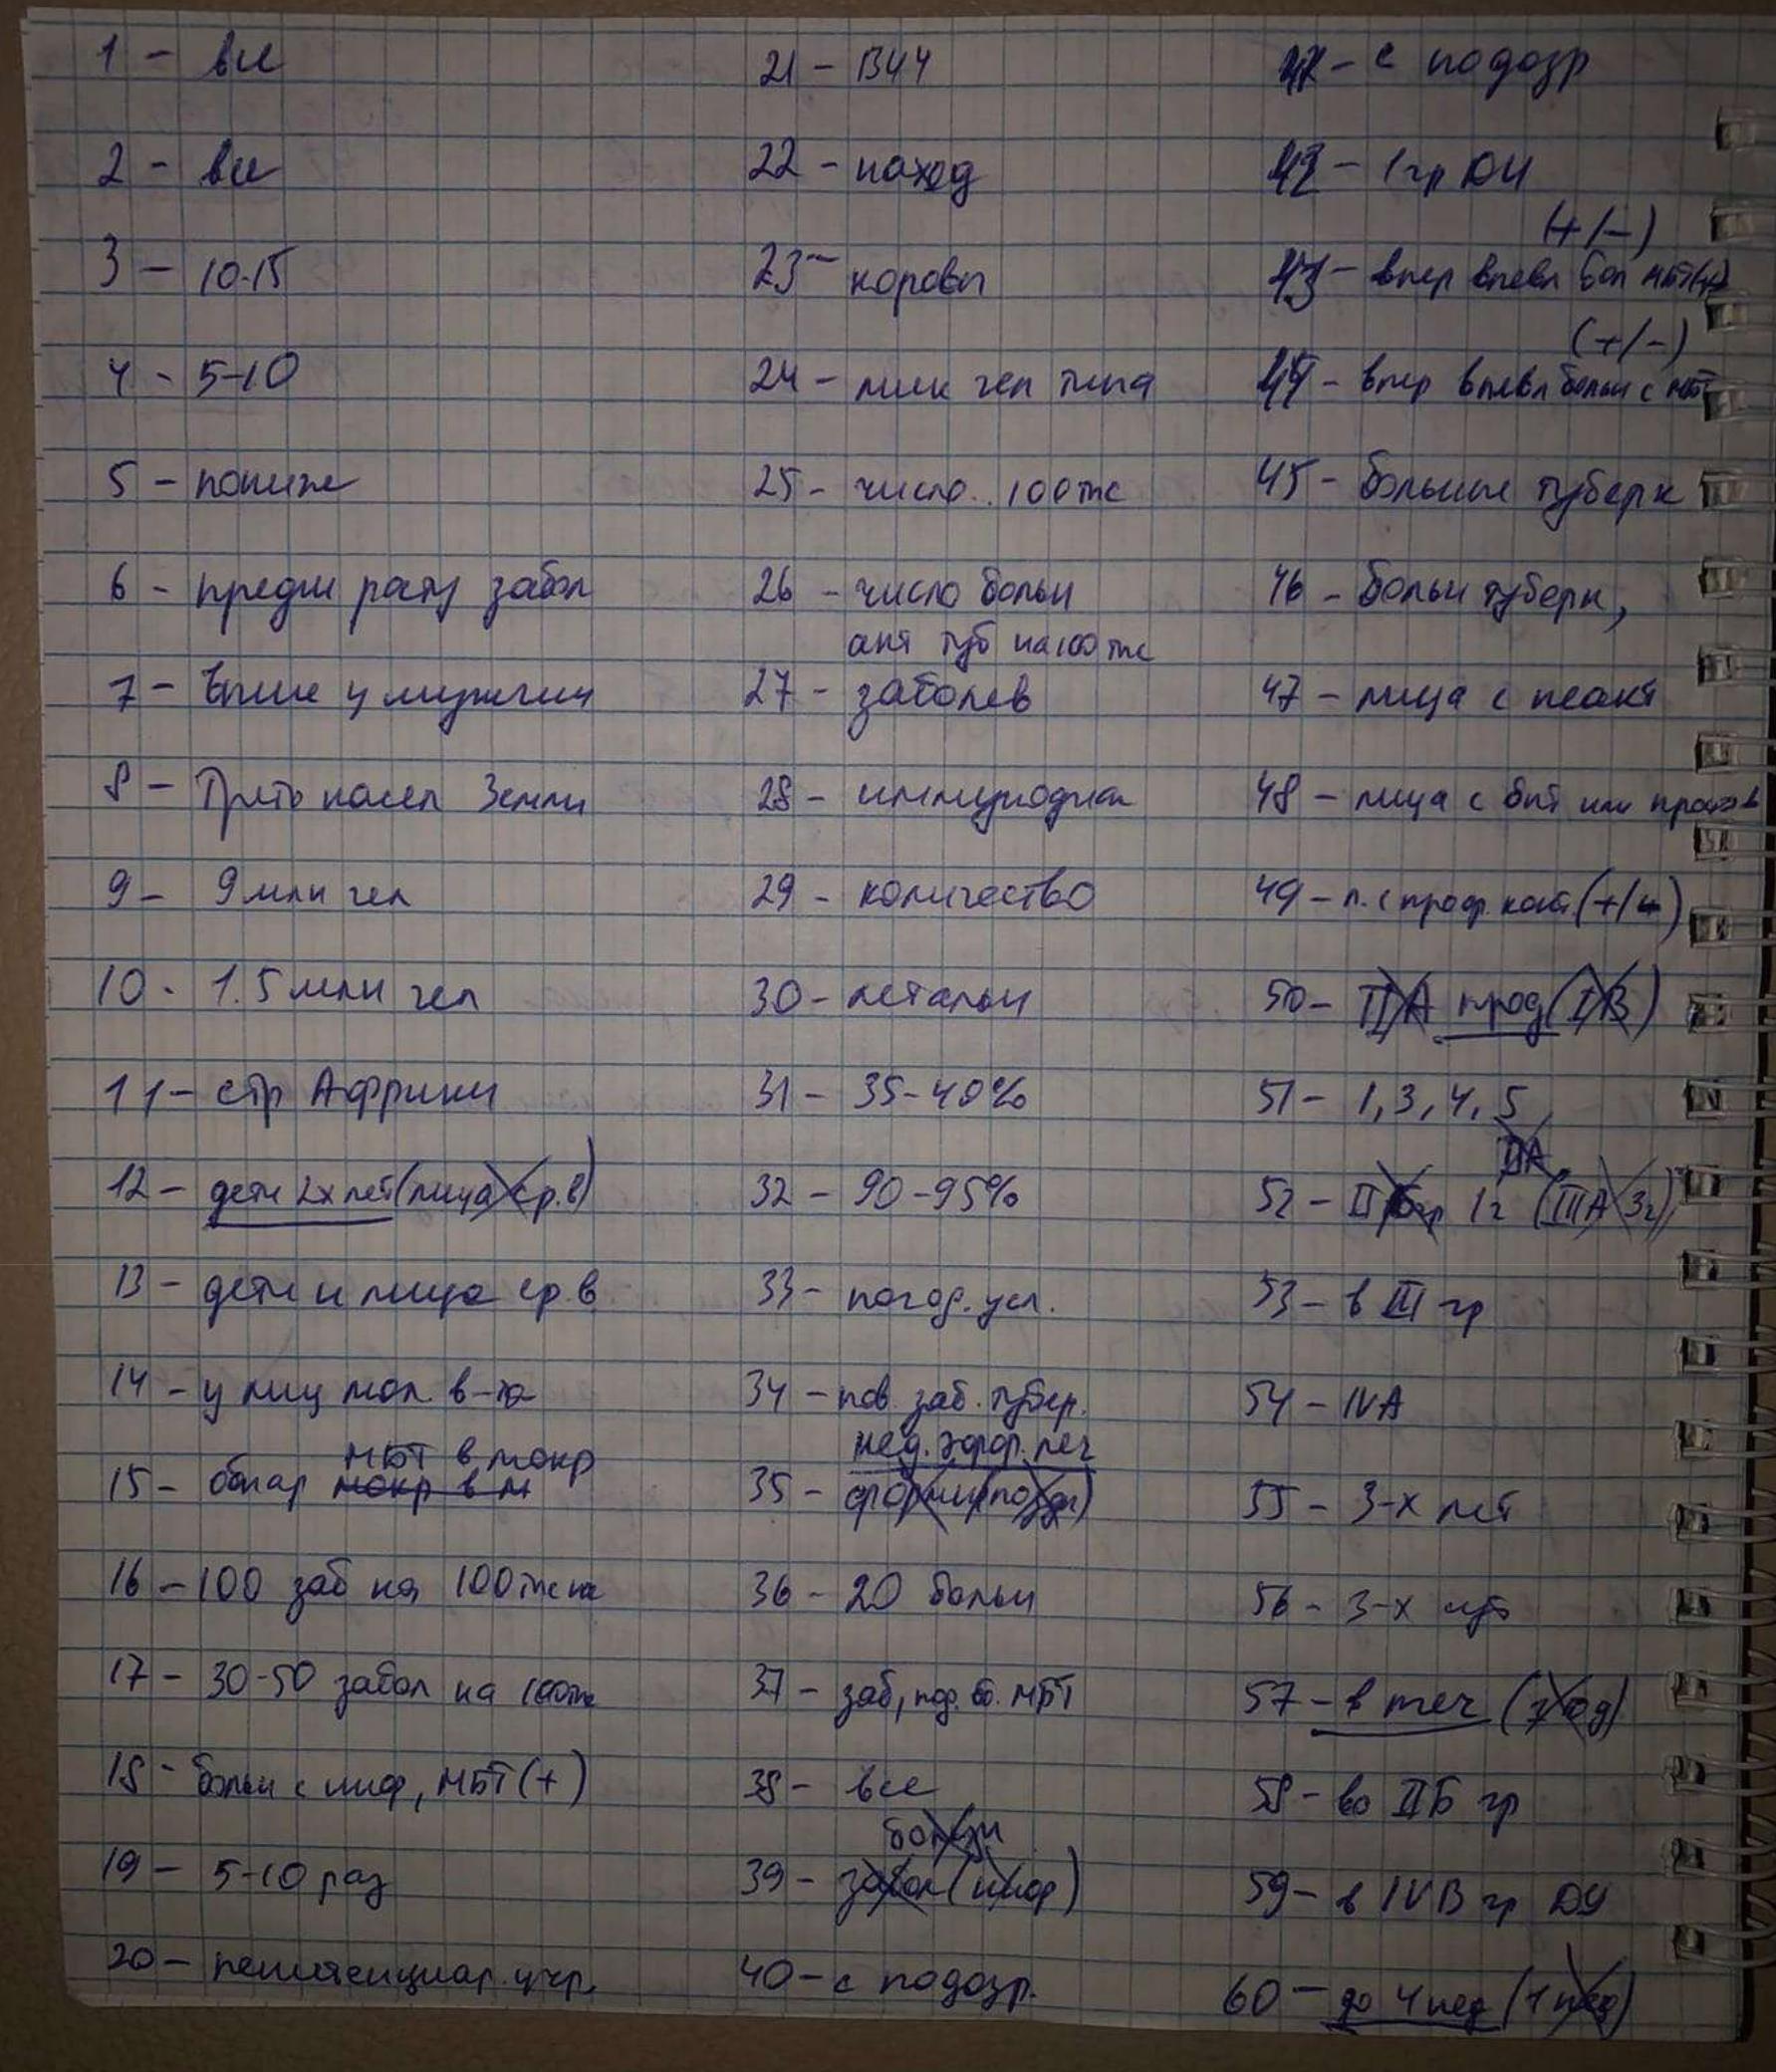 1 - все
2 - все
3 - 10-15
4 - 5-10
5 - пониже
6 - предш разв забол
7 - выше у мужчин
8 - Треть насел Земли
9 - 9 млн чел
10 - 1.5 млн чел
11 - стр Африки
12 - дети 2х лет (лица ср. в)
13 - дети и лица ср. в
14 - у лиц мол. в-та
МБТ в мокр
15 - обнар мокр в м
16 - 100 заб на 100 тыс на
17 - 30-50 забол на 100 тыс
18 - больн с инф, МБТ (+)
19 - 5-10 раз
20 - пенитенциар. учр.
21 - ВИЧ
22 - наход
23 - коровы
24 - мик чел типа
25 - число.. 100 тыс
26 - число больн
акт туб на 100 тыс
27 - заболев
28 - иммунодиаг
29 - количество
30 - летальн
31 - 35-40%
32 - 90-95%
33 - погод. усл.
34 - пов. заб. тубер.
нед. эфф. леч
35 -
36 - 20 больн
37 - заб, МБТ
38 - все
больн
39 - забол (инф)
40 - с подозр.
41 - с подозр
42 - 1 гр ДУ
(+/-)
43 - впер выявл бол МБТ(+)
(+/-)
44 - впер выявл больн с МБТ
45 - больные туберк
46 - больн туберк,
47 - лица с неакт
48 - лица с быт или
49 - л. с проф. конт. (+/-)
50 - IIА прод (IВ)
51 - 1, 3, 4, 5
IIА
52 - 1г (IIIА 3г)
53 - в III гр
54 - IVA
55 - 3-х лет
56 - 3-х
57 - в теч (год)
58 - во IIБ гр
59 - в IVВ гр ДУ
60 - до 4 нед (1 нед)